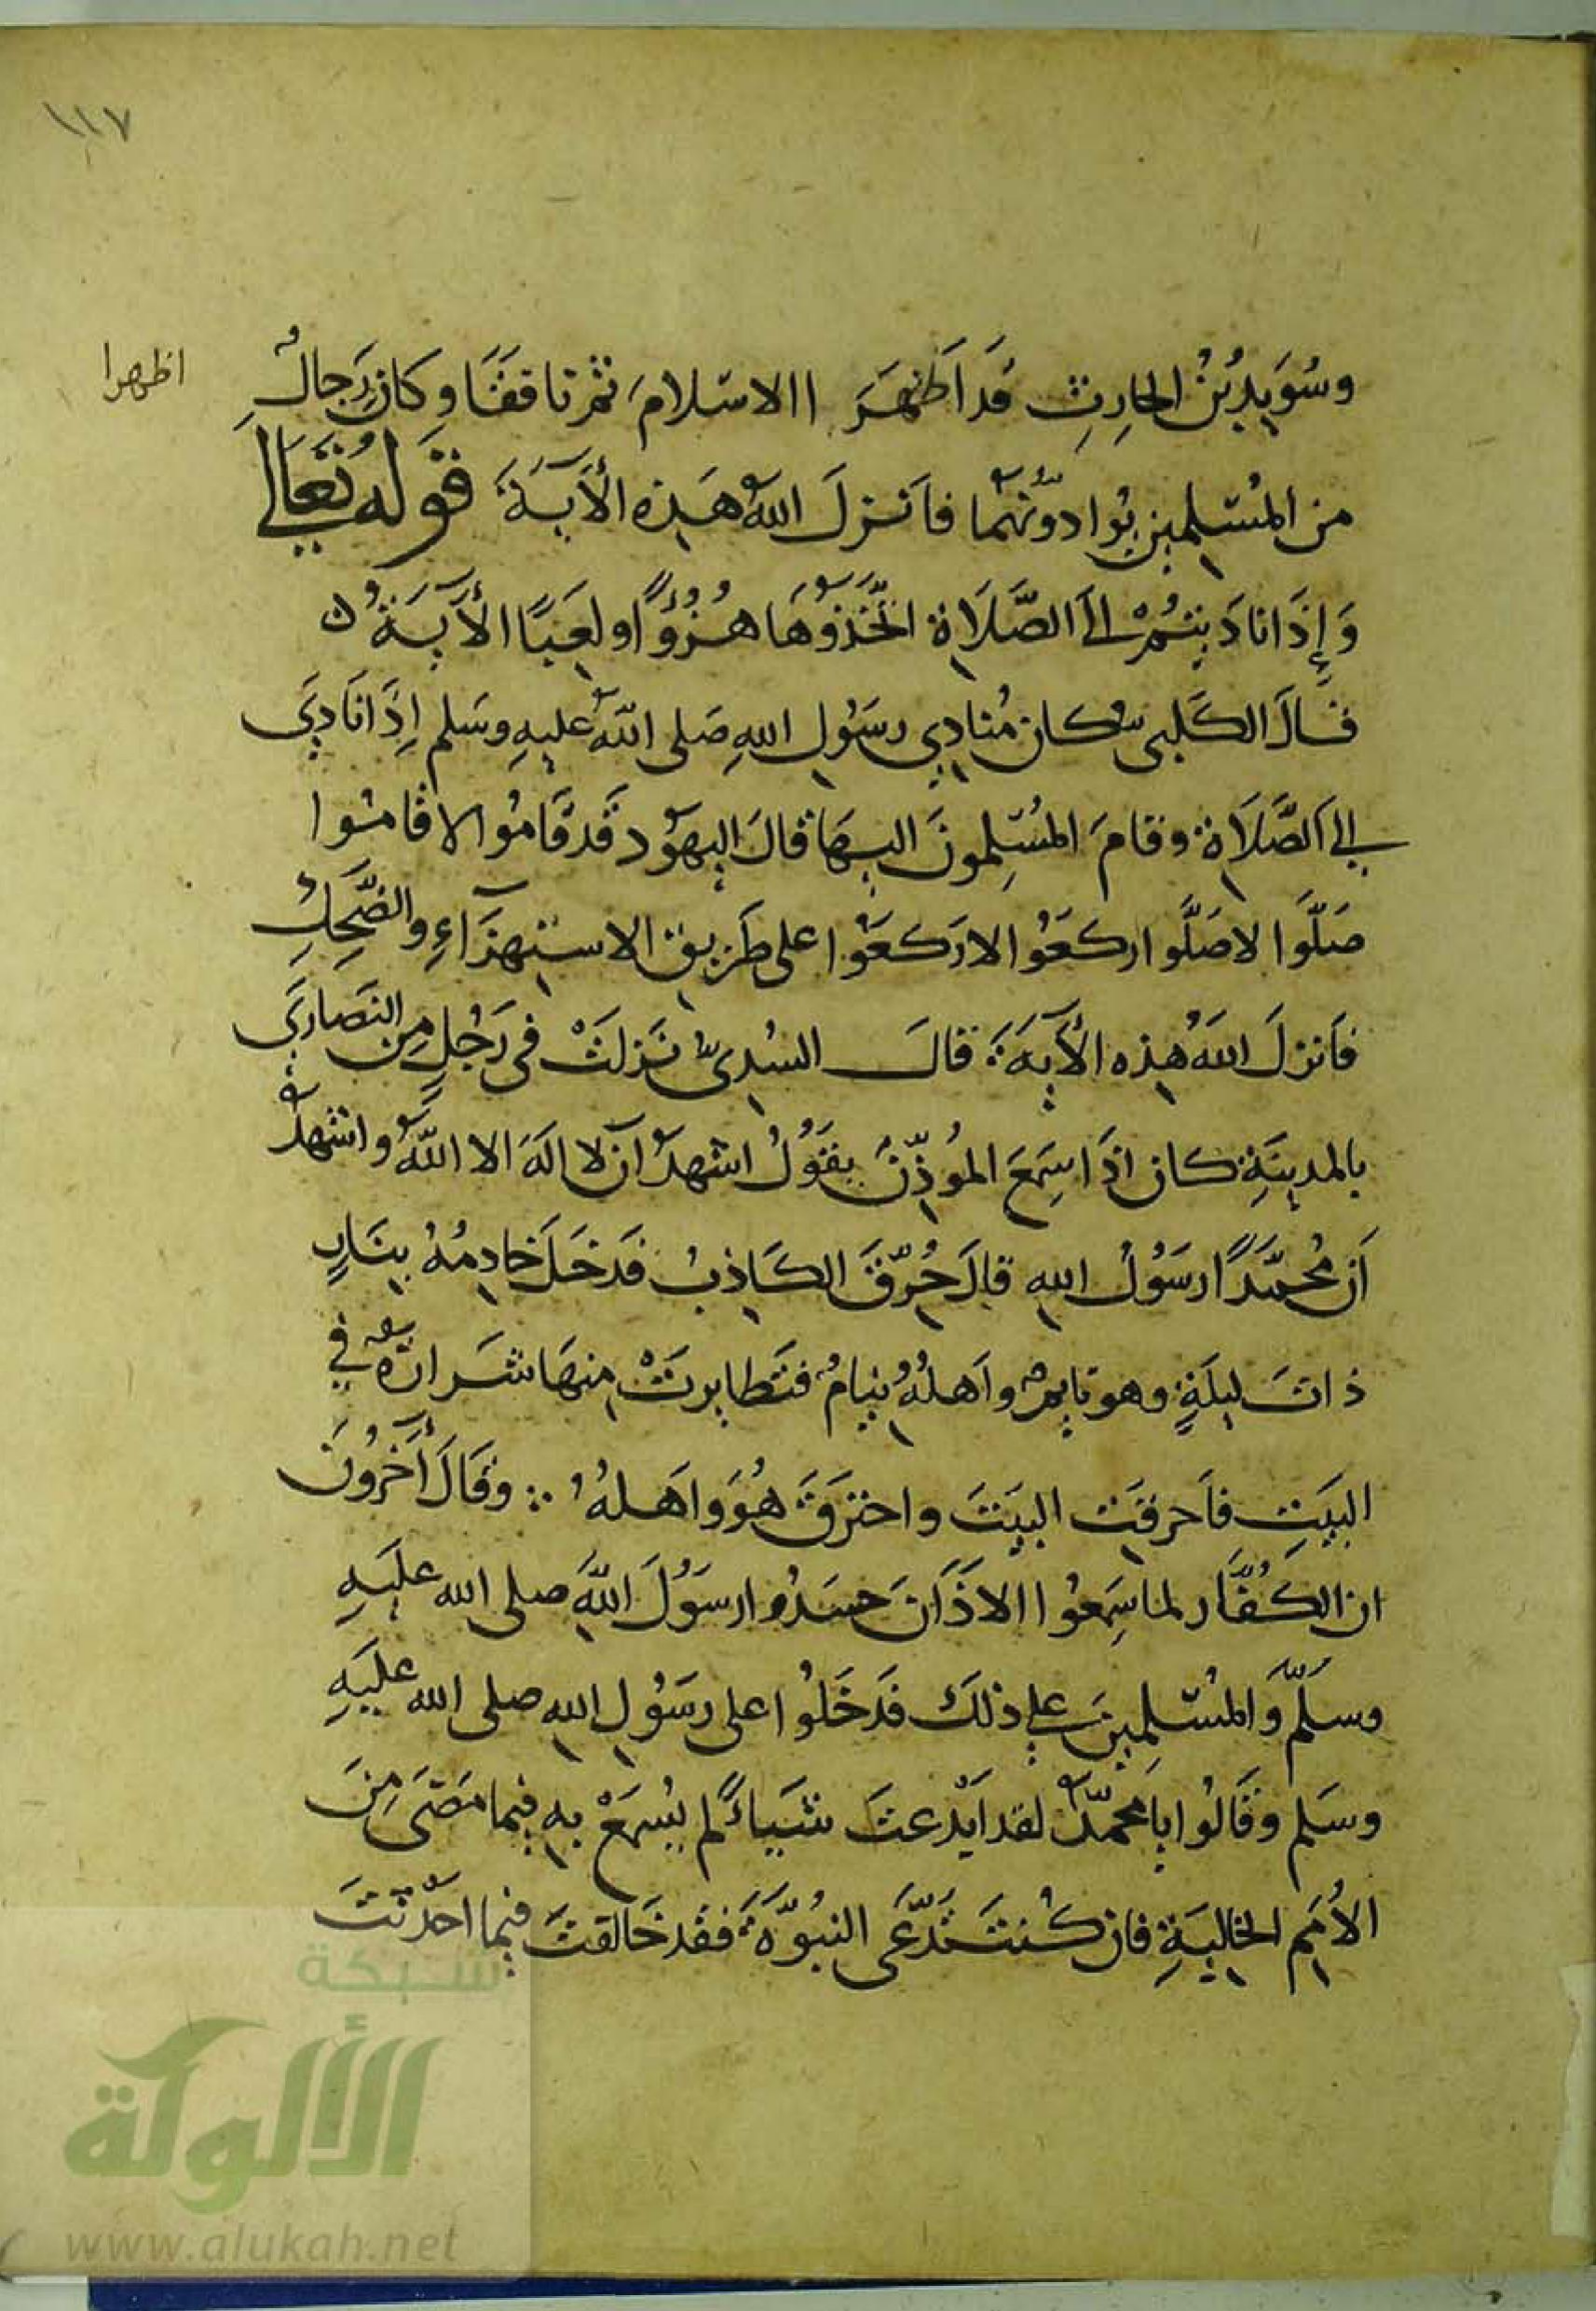 ١١٧
اظهرا
وسُوَيدُ بْنُ الحارِثِ قَد اَظهَرَ االاسْلامَ ثم نافقَا وكان رِجالٌ
من المُسْلِمين يُوادّونَهُما فاَنزلَ اللهُ هَذِه الأَيَةَ قوله تعالى
وَإِذَا نادَيتُمْ إلى الصَّلَاةِ اتَّخَذوُهَا هُزُوًا ولَعِبًا الأَيَةُ ن
قالَ الكَلبي كان مُنادِي رسَوُلِ اللهِ صَلى اللهُ عليهِ وسَلم إِذَا نَادَي
إلى الصَّلَاةِ وقامَ المُسْلِمونَ اليهَا قالَ اليهوُد قَد قَامُوا لا قامُوا
صَلَّوا لا صَلَّوا اركَعَوُا لا ركَعَوُا على طَرِيق الاستِهزَآءِ والضَّحِكِ
فاَنزلَ اللهُ هذِه الأَيَةَ قالَ السُدِيّ نَزلَتْ في رَجُلٍ مِن النَصارَي
بالمدينَةِ كان اِذَا سِمَعَ المُوذّنَ يقوَلُ اشهدُ ان لا الَهَ الا اللهُ واشهدُ
اَن مُحمّدًا رسَوُلُ اللهِ قالَ حُرّقَ الكَاذِبُ فدَخَلَ خادِمُهُ بِنَارٍ
ذاتَ ليلَةٍ وهو نايم واَهلُهُ نِيامٌ فتَطايرتْ مِنهَا شَرارَةٌ في
البَيَتِ فاَحرقَت البيَتَ واحترَقَ هُوَ واَهلهُ ؛ وقَالَ أَخَرُونَ
ان الكُفَّار لما سِمَعُوا الاذَانَ حسَدُوا رسَوُلَ اللهِ صلى الله عليَهِ
وسلّم وَالمُسْلِمينَ على ذلكَ فدَخَلُوا على رسَوُلِ اللهِ صلى الله عليَهِ
وسَلم وقَالُوا يا محمّدُ لقد اَبْدعتَ شَيأً لم يُسمَعْ بِهِ فيما مَضَى مِنَ
الأُمَمِ الخاليَةِ فان كُنتَ تَدّعَى النبُوّةَ فقَد خَالفتَ فيما احدَثتَ
شبكة
الألوكة
www.alukah.net